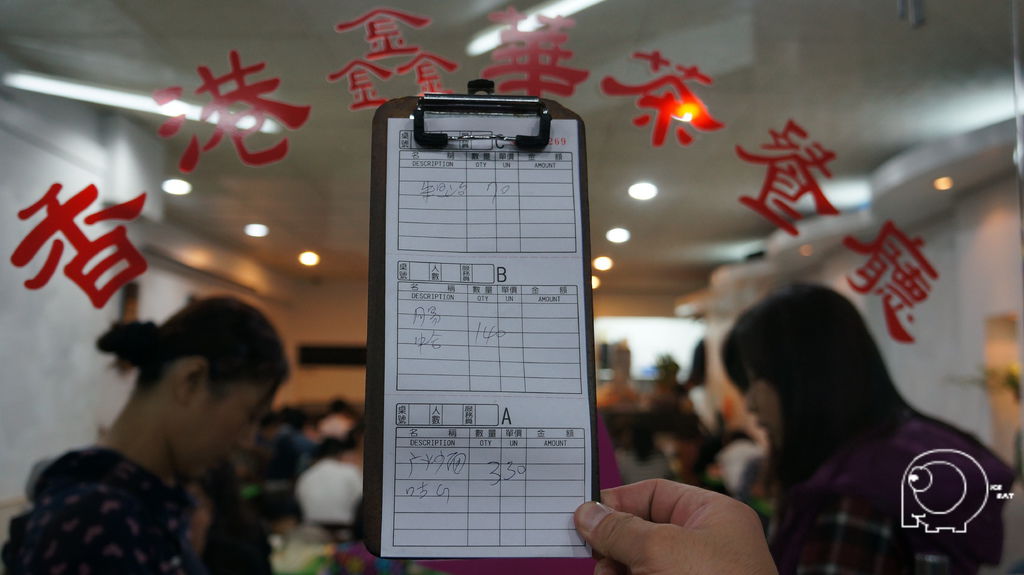 香港鑫華茶餐廳
桌號 服務員 C 269
名稱 數量 單價 金額
DESCRIPTION QTY UN AMOUNT
70
桌號 人數 服務員 B
名稱 數量 單價 金額
DESCRIPTION QTY UN AMOUNT
腸
140
桌號 人數 服務員 A
名稱 數量 單價 金額
DESCRIPTION QTY UN AMOUNT
广炒麵 330
ICE
EAT